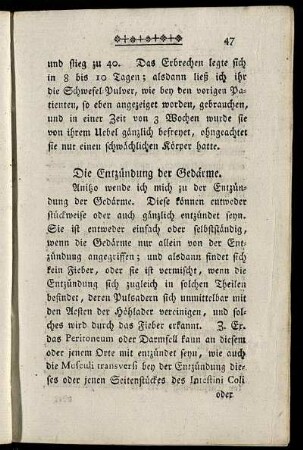 47
und stieg zu 40. Das Erbrechen legte sich
in 8 bis 10 Tagen; alsdann ließ ich ihr
die Schwefel-Pulver, wie bey den vorigen Pa-
tienten, so eben angezeiget worden, gebrauchen,
und in einer Zeit von 3 Wochen wurde sie
von ihrem Uebel gänzlich befreyet, ohngeachtet
sie nur einen schwächlichen Körper hatte.
Die Entzündung der Gedärme.
Anitzo wende ich mich zu der Entzün-
dung der Gedärme. Diese können entweder
stückweise oder auch gänzlich entzündet seyn.
Sie ist entweder einfach oder selbstständig,
wenn die Gedärme nur allein von der Ent-
zündung angegriffen; und alsdann findet sich
kein Fieber, oder sie ist vermischt, wenn die
Entzündung sich zugleich in solchen Theilen
befindet, deren Pulsadern sich unmittelbar mit
den Aesten der Hohlader vereinigen, und sol-
ches wird durch das Fieber erkannt. Z. Ex.
das Peritoneum oder Darmfell kann an diesem
oder jenem Orte mit entzündet seyn, wie auch
die Musculi transversi bey der Entzündung die-
ses oder jenen Seitenstückes des Intestini Coli
oder